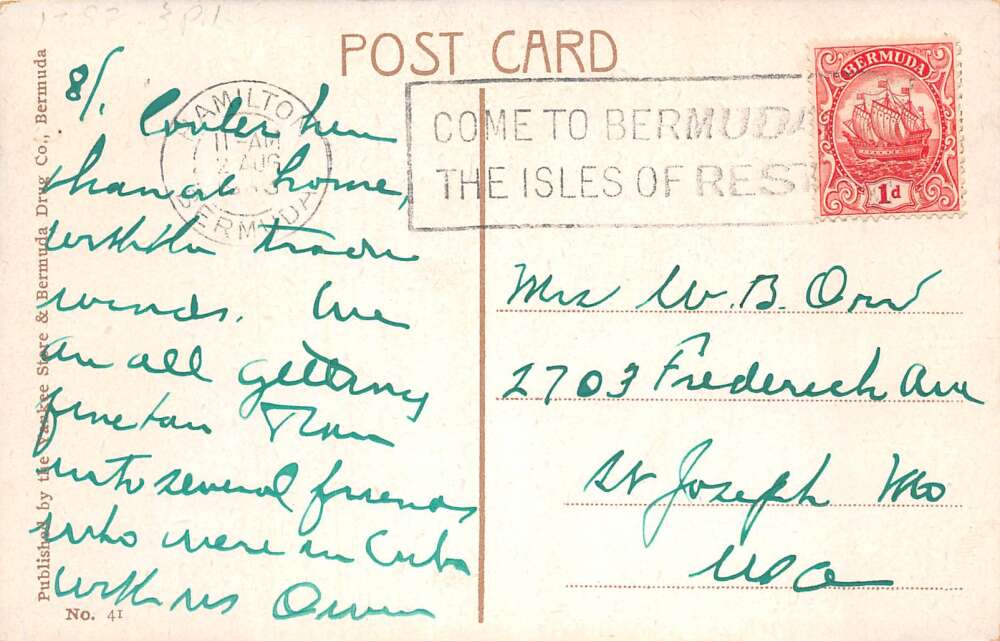 POST CARD
Published by the Yankee Store & Bermuda Drug Co., Bermuda
No. 41
HAMILTON
11-AM
2 AUG
BERMUDA
COME TO BERMUDA
THE ISLES OF REST
BERMUDA
1d
8/1
Cooler here
than at home,
with the trade
winds. We
are all getting
fine tan Ran
into several friends
who were in Cuba
with us Owen
Mrs W. B. Orr
2703 Frederick Ave
St Joseph Mo
USA